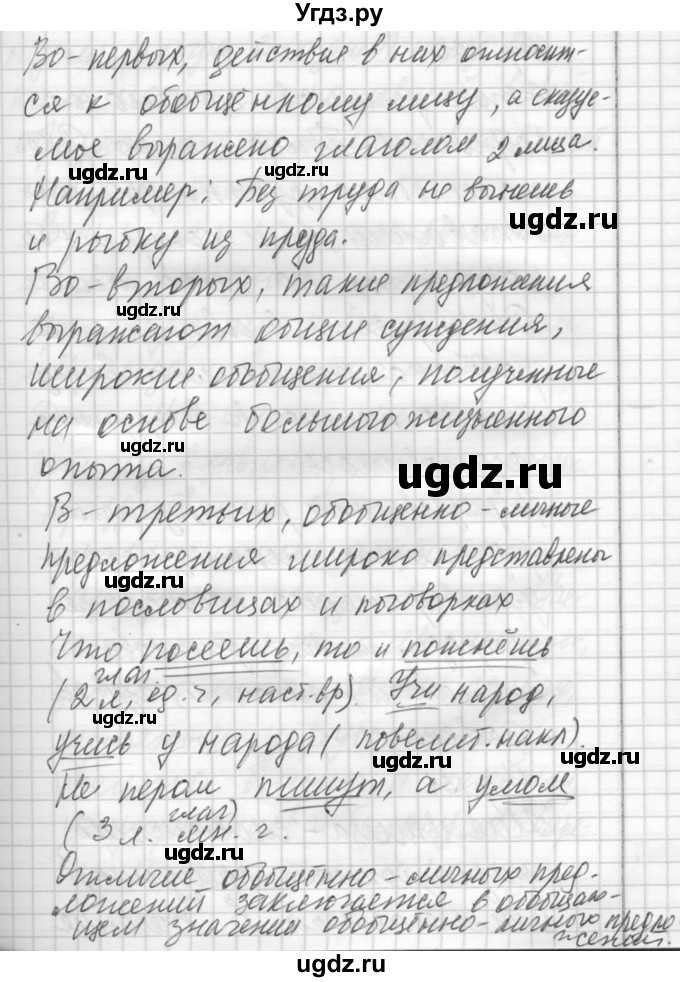 Угдз.ру
Во-первых, действие в них относит-
ся к обобщенному лицу, а сказуе-
мое выражено глаголом 2 лица.
ugdz.ru
ugdz.ru
Например: Без труда не вынешь
ugdz.ru
и рыбку из пруда.
Во-вторых, такие предложения
ugdz.ru
выражают общие суждения,
широкие обобщения, полученные
на основе большого жизненного
ugdz.ru
опыта.
ugdz.ru
В-третьих, обобщенно-личные
предложения широко представлены
ugdz.ru
в пословицах и поговорках
Что посеешь, то и пожнёшь
глаг.
(2 л, ед. ч, наст. вр). Учи народ,
ugdz.ru
учись у народа (повелит. накл).
ugdz.ru
Не пером пишут, а умом
глаг)
(3 л. мн. ч.
ugdz.ru
Отличие обобщенно-личных пред-
ложений заключается в обобщаю-
щем значении обобщённо-личного предло
жений.
ugdz.ru